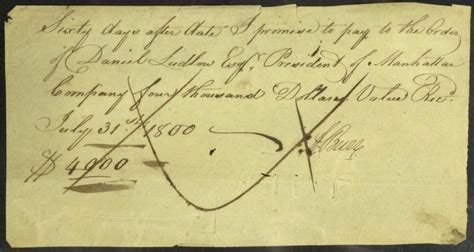 Sixty days after date I promise to pay to the Order
of Daniel Ludlow Esqr. President of Manhattan
Company four thousand Dollars Value Recd.
July 31st 1800
ABurr
$ 4000